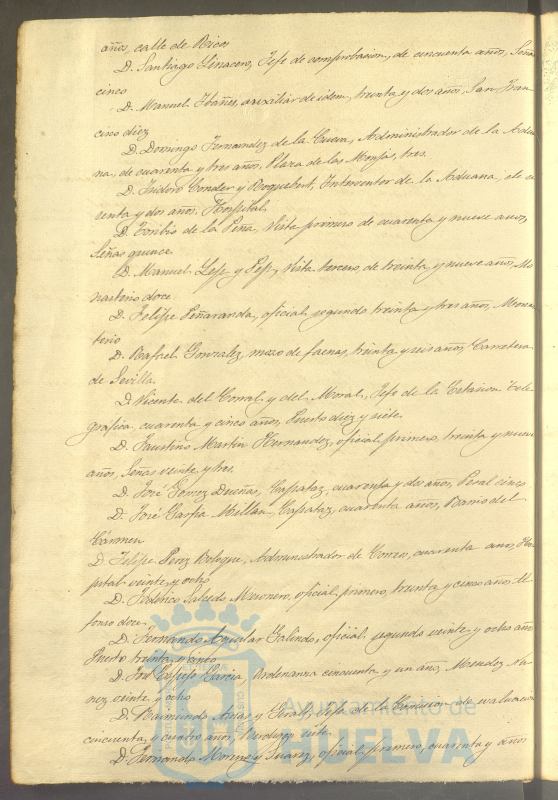 años, calle de Ricos
D. Santiago Linacero, Jefe de comprobacion, de cincuenta años, Señas
cinco
D. Manuel Ibáñez, auxiliar de idem, treinta y dos años, San Fran
cisco diez
D. Domingo Fernandez de la Cueva, Administrador de la Adua
na, de cuarenta y tres años, Plaza de las Monjas, tres.
D. Isidoro Conder y Roquebert, Interventor de la Aduana, de cu
renta y dos años, Hospital.
D. Toribio de la Peña, Vista primero de cuarenta y nueve años,
Señas quince
D. Manuel y Vista tercero, de treinta y nueve años, Mo
nasterio doce
D. Felipe Peñaranda, oficial segundo treinta y tres años, Monas
terio
D. Rafael Gonzalez, mozo de faenas, treinta y seis años, Carretera
de Sevilla.
D. Vicente del Corral y del Moral, Jefe de la Estacion Tele
grafica, cuarenta y cinco años, Puerto diez y siete.
D. Faustino Martin Hernandez, oficial primero, treinta y nueve
años, Señas veinte y tres.
D. José Gomez Dueñas, Capataz, cuarenta y dos años, Peral cinco
D. José Garfia Millan Capataz, cuarenta años, Barrio del
Cármen
D. Felipe Perez Bologue, Administrador de Correos, cuarenta años, Hos
pital veinte y ocho
D. Federico Salcedo oficial primero, treinta y cinco años Al
fonso doce.
D. Fernando Aguilar Galindo, oficial segundo veinte y ocho años
Puerto treinta y cinco
D. José Garcia, Ordenanza cincuenta y un años, Mendez Nu
ñez veinte y ocho
D. Raimundo Arias y Jefe de la Comision de evaluacion
cincuenta y cuatro años, siete.
D. Fernando Moreno y Suarez, oficial primero, cuarenta y años
Ayuntamiento de
HUELVA